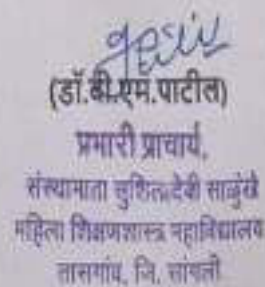 (डॉ.बी.एम.पाटील)
प्रभारी प्राचार्य,
संस्थामाता सुशिलादेवी साळुंखे
महिला शिक्षणशास्त्र महाविद्यालय
तासगांव, जि. सांगली